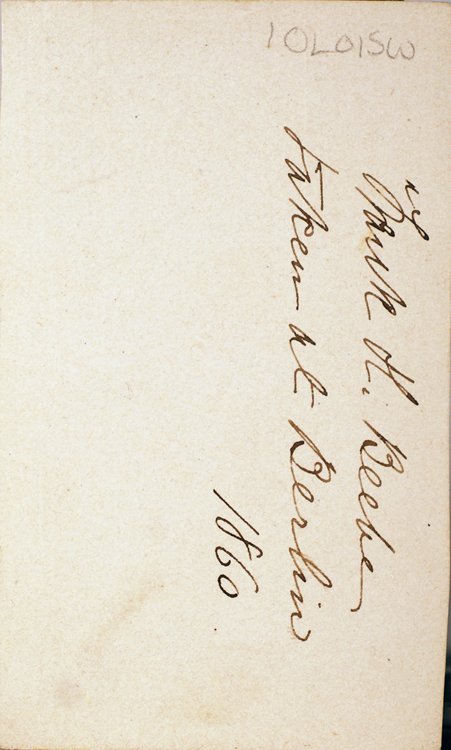 10L015W
Frank H. Beebe
Taken at Berlin
1860.